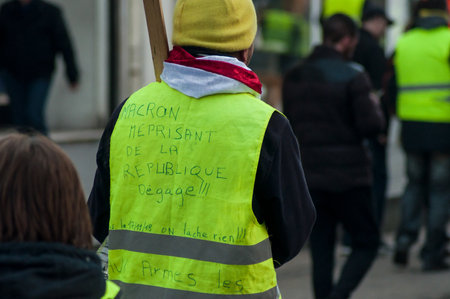 MACRON
MEPRISANT
DE LA
REPUBLIQUE
Dégage!!!
on lache rien!!!
ARMES les